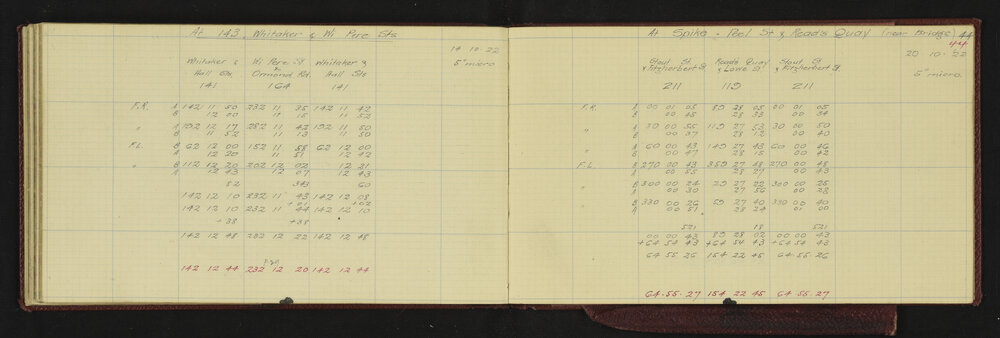 At 143, Whitaker & Wi Pere Sts
14 10 22
5" micro
Whitaker & Wi Pere St Whitaker &
Hall Sts & Ormond Rd. Hall Sts
141 164 141
F.R. A 142 11 50 232 11 35 142 11 42
B 12 00 11 15 11 52
" A 192 12 17 282 11 42 192 11 50
B 11 52 11 13 11 50
F.L. B 62 12 00 152 11 58 62 12 00
A 12 20 11 51 12 42
" B 112 12 20 202 12 02 12 21
A 12 43 12 07 12 43
52 343 60
142 12 10 232 11 43 142 12 08
+01 +02
142 12 10 232 11 44 142 12 10
+38 +38
142 12 48 232 12 22 142 12 48
142 12 44 232 12 20 142 12 44
At Spike - Peel St & Reads Quay (near Bridge) 44
44
20 10 '22
5" micro
Stout St Reads Quay Stout St
& Fitzherbert St & Lowe St & Fitzherbert St
211 119 211
F.R. A 00 01 05 89 28 05 00 01 05
B 00 45 28 33 00 34
" A 30 00 55 119 27 53 30 00 50
B 00 37 28 12 00 40
" A 60 00 43 149 27 43 60 00 46
B 00 47 28 15 00 42
F.L. B 270 00 43 359 27 48 270 00 48
A 00 55 28 27 00 43
" B 300 00 24 29 27 22 300 00 25
A 00 30 27 56 00 23
" B 330 00 26 59 27 40 330 00 40
A 00 51 28 24 01 00
521 18 521
00 00 43 89 28 02 00 00 43
+64 54 43 +64 54 43 +64 54 43
64 55 26 154 22 45 64 55 26
64.55.27 154 22 45 64.55.27